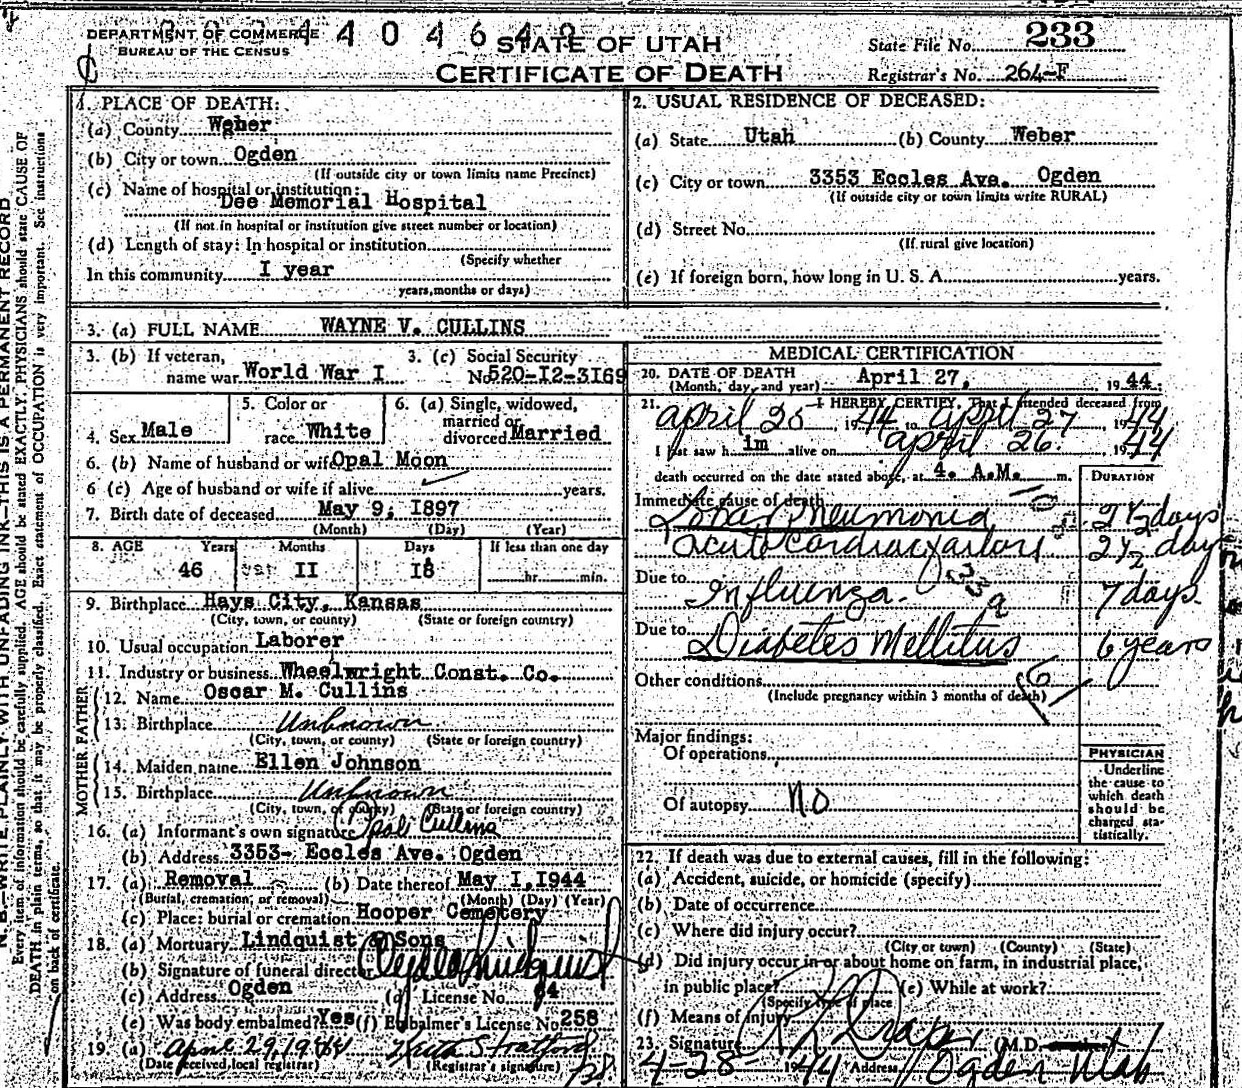 DEPARTMENT OF COMMERCE
BUREAU OF THE CENSUS
STATE OF UTAH
CERTIFICATE OF DEATH
State File No. 233
Registrar's No. 264-F
1. PLACE OF DEATH:
(a) County Weber
(b) City or town Ogden
(If outside city or town limits name Precinct)
(c) Name of hospital or institution:
Dee Memorial Hospital
(If not in hospital or institution give street number or location)
(d) Length of stay: In hospital or institution
(Specify whether
In this community I year
years, months or days)
2. USUAL RESIDENCE OF DECEASED:
(a) State Utah (b) County Weber
(c) City or town 3353 Eccles Ave. Ogden
(If outside city or town limits write RURAL)
(d) Street No.
(If rural give location)
(e) If foreign born, how long in U. S. A. years.
3. (a) FULL NAME WAYNE V. CULLINS
3. (b) If veteran, name war World War I
3. (c) Social Security No. 520-I2-3I69
4. Sex Male
5. Color or race White
6. (a) Single, widowed, married or divorced Married
6. (b) Name of husband or wife Opal Moon
6 (c) Age of husband or wife if alive years.
7. Birth date of deceased May 9, I897
(Month) (Day) (Year)
8. AGE Years Months Days If less than one day
46 II I8 hr. min.
9. Birthplace Hays City, Kansas
(City, town, or county) (State or foreign country)
10. Usual occupation Laborer
11. Industry or business Wheelwright Const. Co.
FATHER
12. Name Oscar M. Cullins
13. Birthplace Unknown
(City, town, or county) (State or foreign country)
MOTHER
14. Maiden name Ellen Johnson
15. Birthplace Unknown
(City, town, or county) (State or foreign country)
16. (a) Informant's own signature Opal Cullins
(b) Address 3353- Eccles Ave. Ogden
17. (a) Removal (b) Date thereof May I, I944
(Burial, cremation, or removal) (Month) (Day) (Year)
(c) Place: burial or cremation Hooper Cemetery
18. (a) Mortuary Lindquist & Sons
(b) Signature of funeral director
(c) Address Ogden (d) License No. 94
(e) Was body embalmed? Yes (f) Embalmer's License No 258
19. (a) April 29, 1944
(Date received local registrar) (Registrar's signature)
MEDICAL CERTIFICATION
20. DATE OF DEATH
(Month, day, and year) April 27, 19 44.
21. I HEREBY CERTIFY, That I attended deceased from
April 25, 1944 to April 27, 1944
I last saw him alive on April 26. 1944
death occurred on the date stated above, at 4. A.M. m.
DURATION
Immediate cause of death
Lobar Pneumonia 2 1/2 days
Acute cardiac 2 1/2 days
Due to Influenza. 7 days.
33a
Due to Diabetes Mellitus 6 years
Other conditions
(Include pregnancy within 3 months of death)
Major findings:
Of operations
Of autopsy No
PHYSICIAN
Underline
the cause to
which death
should be
charged sta-
tistically.
22. If death was due to external causes, fill in the following:
(a) Accident, suicide, or homicide (specify)
(b) Date of occurrence
(c) Where did injury occur?
(City or town) (County) (State)
(d) Did injury occur in or about home on farm, in industrial place,
in public place? (e) While at work?
(Specify type of place
(f) Means of injury
23. Signature (M.D.
4-28- 1944 Address Ogden Utah
N. B.—WRITE PLAINLY WITH UNFADING INK—THIS IS A PERMANENT RECORD
Every item of information should be carefully supplied. AGE should be stated EXACTLY. PHYSICIANS should state CAUSE OF
DEATH in plain terms, so that it may be properly classified. Exact statement of OCCUPATION is very important. See instructions
on back of certificate.